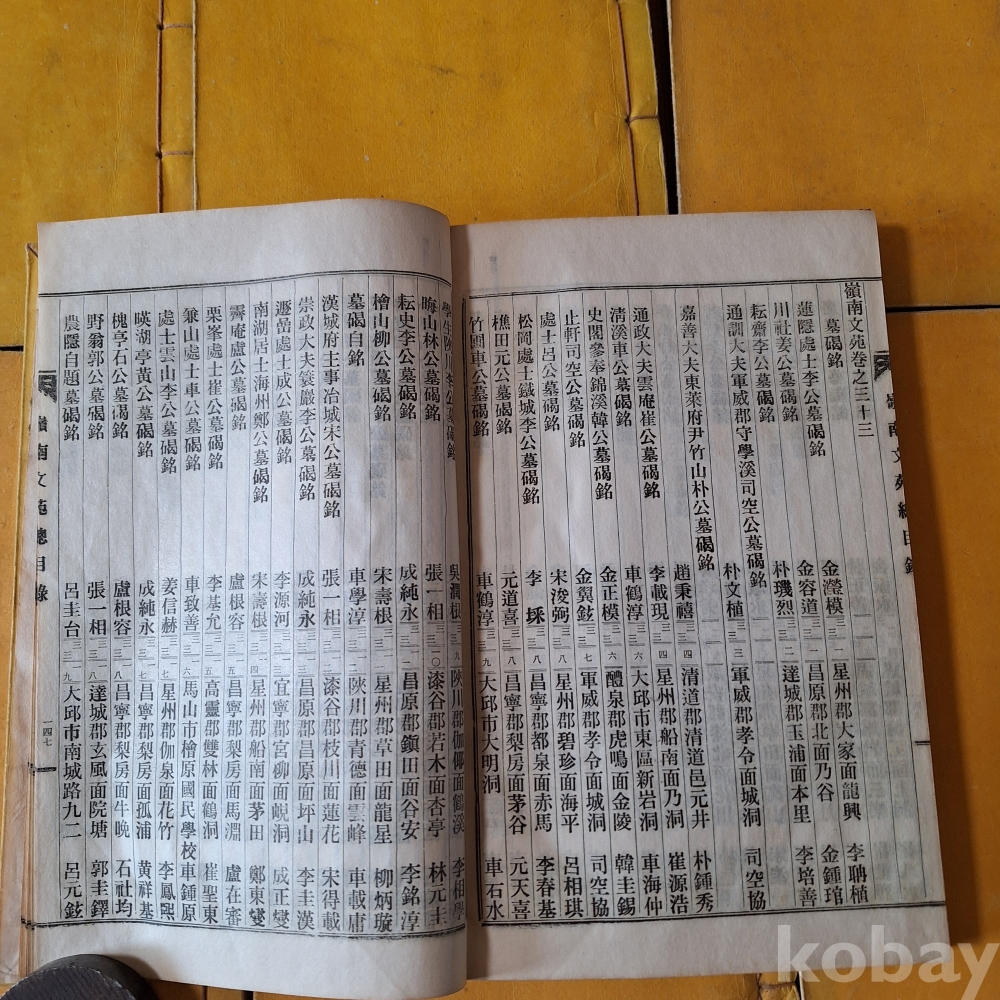 嶺南文苑卷之三十三
墓碣銘
蓮隱處士李公墓碣銘 金瀅模 三 一 星州郡大家面龍興 李聃植
川社姜公墓碣銘 金容道 三 一 昌原郡北面乃谷 金鍾琯
耘齋李公墓碣銘 朴璣烈 三 二 達城郡玉浦面本里 李培善
通訓大夫軍威郡守學溪司空公墓碣銘 朴文植 三 三 軍威郡孝令面城洞 司空協
嘉善大夫東萊府尹竹山朴公墓碣銘 趙秉禧 三 四 清道清道邑元井 朴鍾秀
通政大夫雲庵崔公墓碣銘 李載現 三 四 星州郡船南面乃洞 崔源浩
清溪車公墓碣銘 車鶴淳 三 六 大邱市東區新岩洞 車海仲
史閣參奉錦溪韓公墓碣銘 金正模 三 六 醴泉郡虎鳴面金陵 韓圭錫
止軒司空公墓碣銘 金翼鉉 三 七 軍威郡孝令面城洞 司空協
處士呂公墓碣銘 宋浚弼 三 八 星州郡碧珍面海平 呂相琪
松岡處士鐵城李公墓碣銘 李 三 八 昌寧郡都泉面赤馬 李春基
樵田元公墓碣銘 元道喜 三 八 昌寧郡梨房面茅谷 元天喜
竹圃車公墓碣銘 車鶴淳 三 九 大邱市大明洞 車石水
嶺南文苑總目錄
學生陜川李公墓碣銘 吳潤根 三 九 陜川郡伽倻面鶴溪 李相學
晦山林公墓碣銘 張一相 三 一〇 漆谷郡若木面杏亭 林元圭
耘史李公墓碣銘 成純永 三 一 昌原郡鎭田面谷安 李銘淳
檜山柳公墓碣銘 宋壽根 三 一 星州郡草田面龍星 柳炳璇
墓碣自銘 車學淳 三 一 陜川郡青德面雲峰 車載庸
漢城府主事冶城宋公墓碣銘 張一相 三 一 漆谷郡枝川面蓮花 宋得載
崇政大夫簑巖李公墓碣銘 成純永 三 一 昌原郡昌原面坪山 李圭漢
遯嵒處士成公墓碣銘 李源河 三 一 宜寧郡宮柳面峴洞 成正燮
南湖居士海州鄭公墓碣銘 宋壽根 三 一四 星州郡船南面茅田 鄭東燮
霽庵盧公墓碣銘 盧根容 三 一五 昌寧郡梨房面馬淵 盧在審
栗峯處士崔公墓碣銘 李基允 三 一五 高靈郡雙林面鶴洞 崔聖東
兼山處士車公墓碣銘 車致善 三 一六 馬山市檜原國民學校 車鍾原
處士雲山李公墓碣銘 姜信赫 三 一七 星州郡伽泉面花竹 李鳳熙
暎湖亭黃公墓碣銘 成純永 三 一七 昌寧郡梨房面孤浦 黃祥基
槐亭石公墓碣銘 盧根容 三 一八 昌寧郡梨房面牛晚 石社均
野翁郭公墓碣銘 張一相 三 一八 達城郡玄風面院塘 郭圭鐸
農隱自題墓碣銘 呂圭台 三 一九 大邱市南城路九二 呂元鉉
嶺南文苑總目錄
一四七
kobay